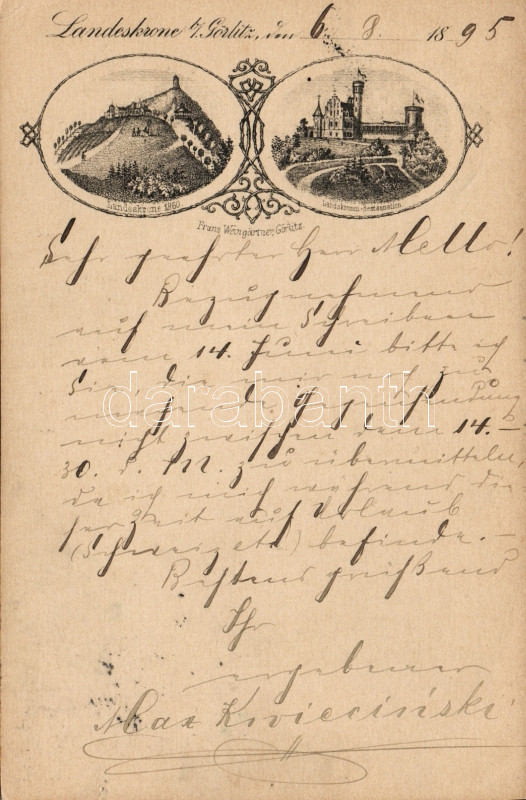 Landeskrone b/Görlitz, den 6 8. 1895
Landeskrone 1860.
Landskronen-Restauration
Franz Weingärtner, Görlitz.
Sehr geehrter Herr Mello!
Bezugnehmend
auf mein Schreiben
vom 14. Juni bitte ich
Sie, die mir noch zu
machende
nicht zwischen dem 14. –
30. d. M. zu übermitteln,
da ich mich während die
ser Zeit auf Urlaub
(Schweiz etc.) befinde. –
Bestens grüßend
Ihr
ergebener
Max Kwieciński
darabanth